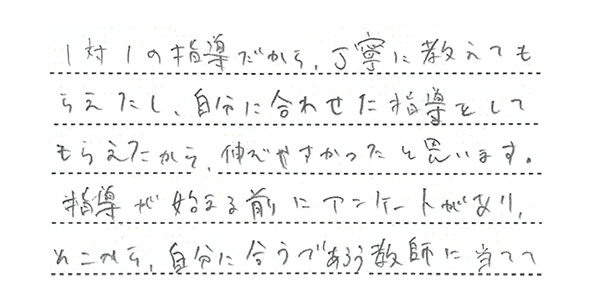 1対1の指導だから、丁寧に教えても
らえたし、自分に合わせた指導をして
もらえたから、伸びやすかったと思います。
指導が始まる前にアンケートがあり、
そこから、自分に合うであろう教師に当てて